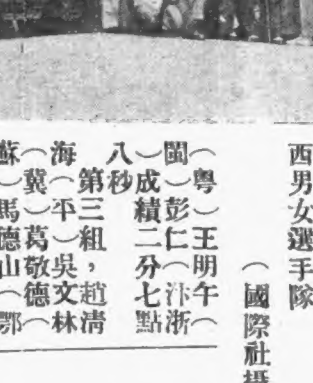 西男女選手隊
（國際社攝
（粵）王明午（
閩）彭仁（汴浙
）成績二分七點
八秒
第三組，趙清
海（平）吳文林
（冀）葛敬德（
蘇）馬德山（鄂